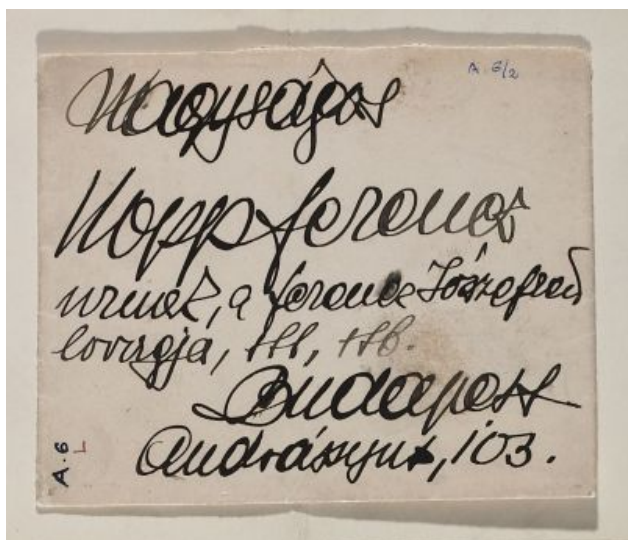 Nagyságos
A. 6/2
Hopp Ferencz
urnak, a Ferencz Józsefrend
lovagja, stb, stb.
Budapest
Andrássyut, 103.
A. 6
L